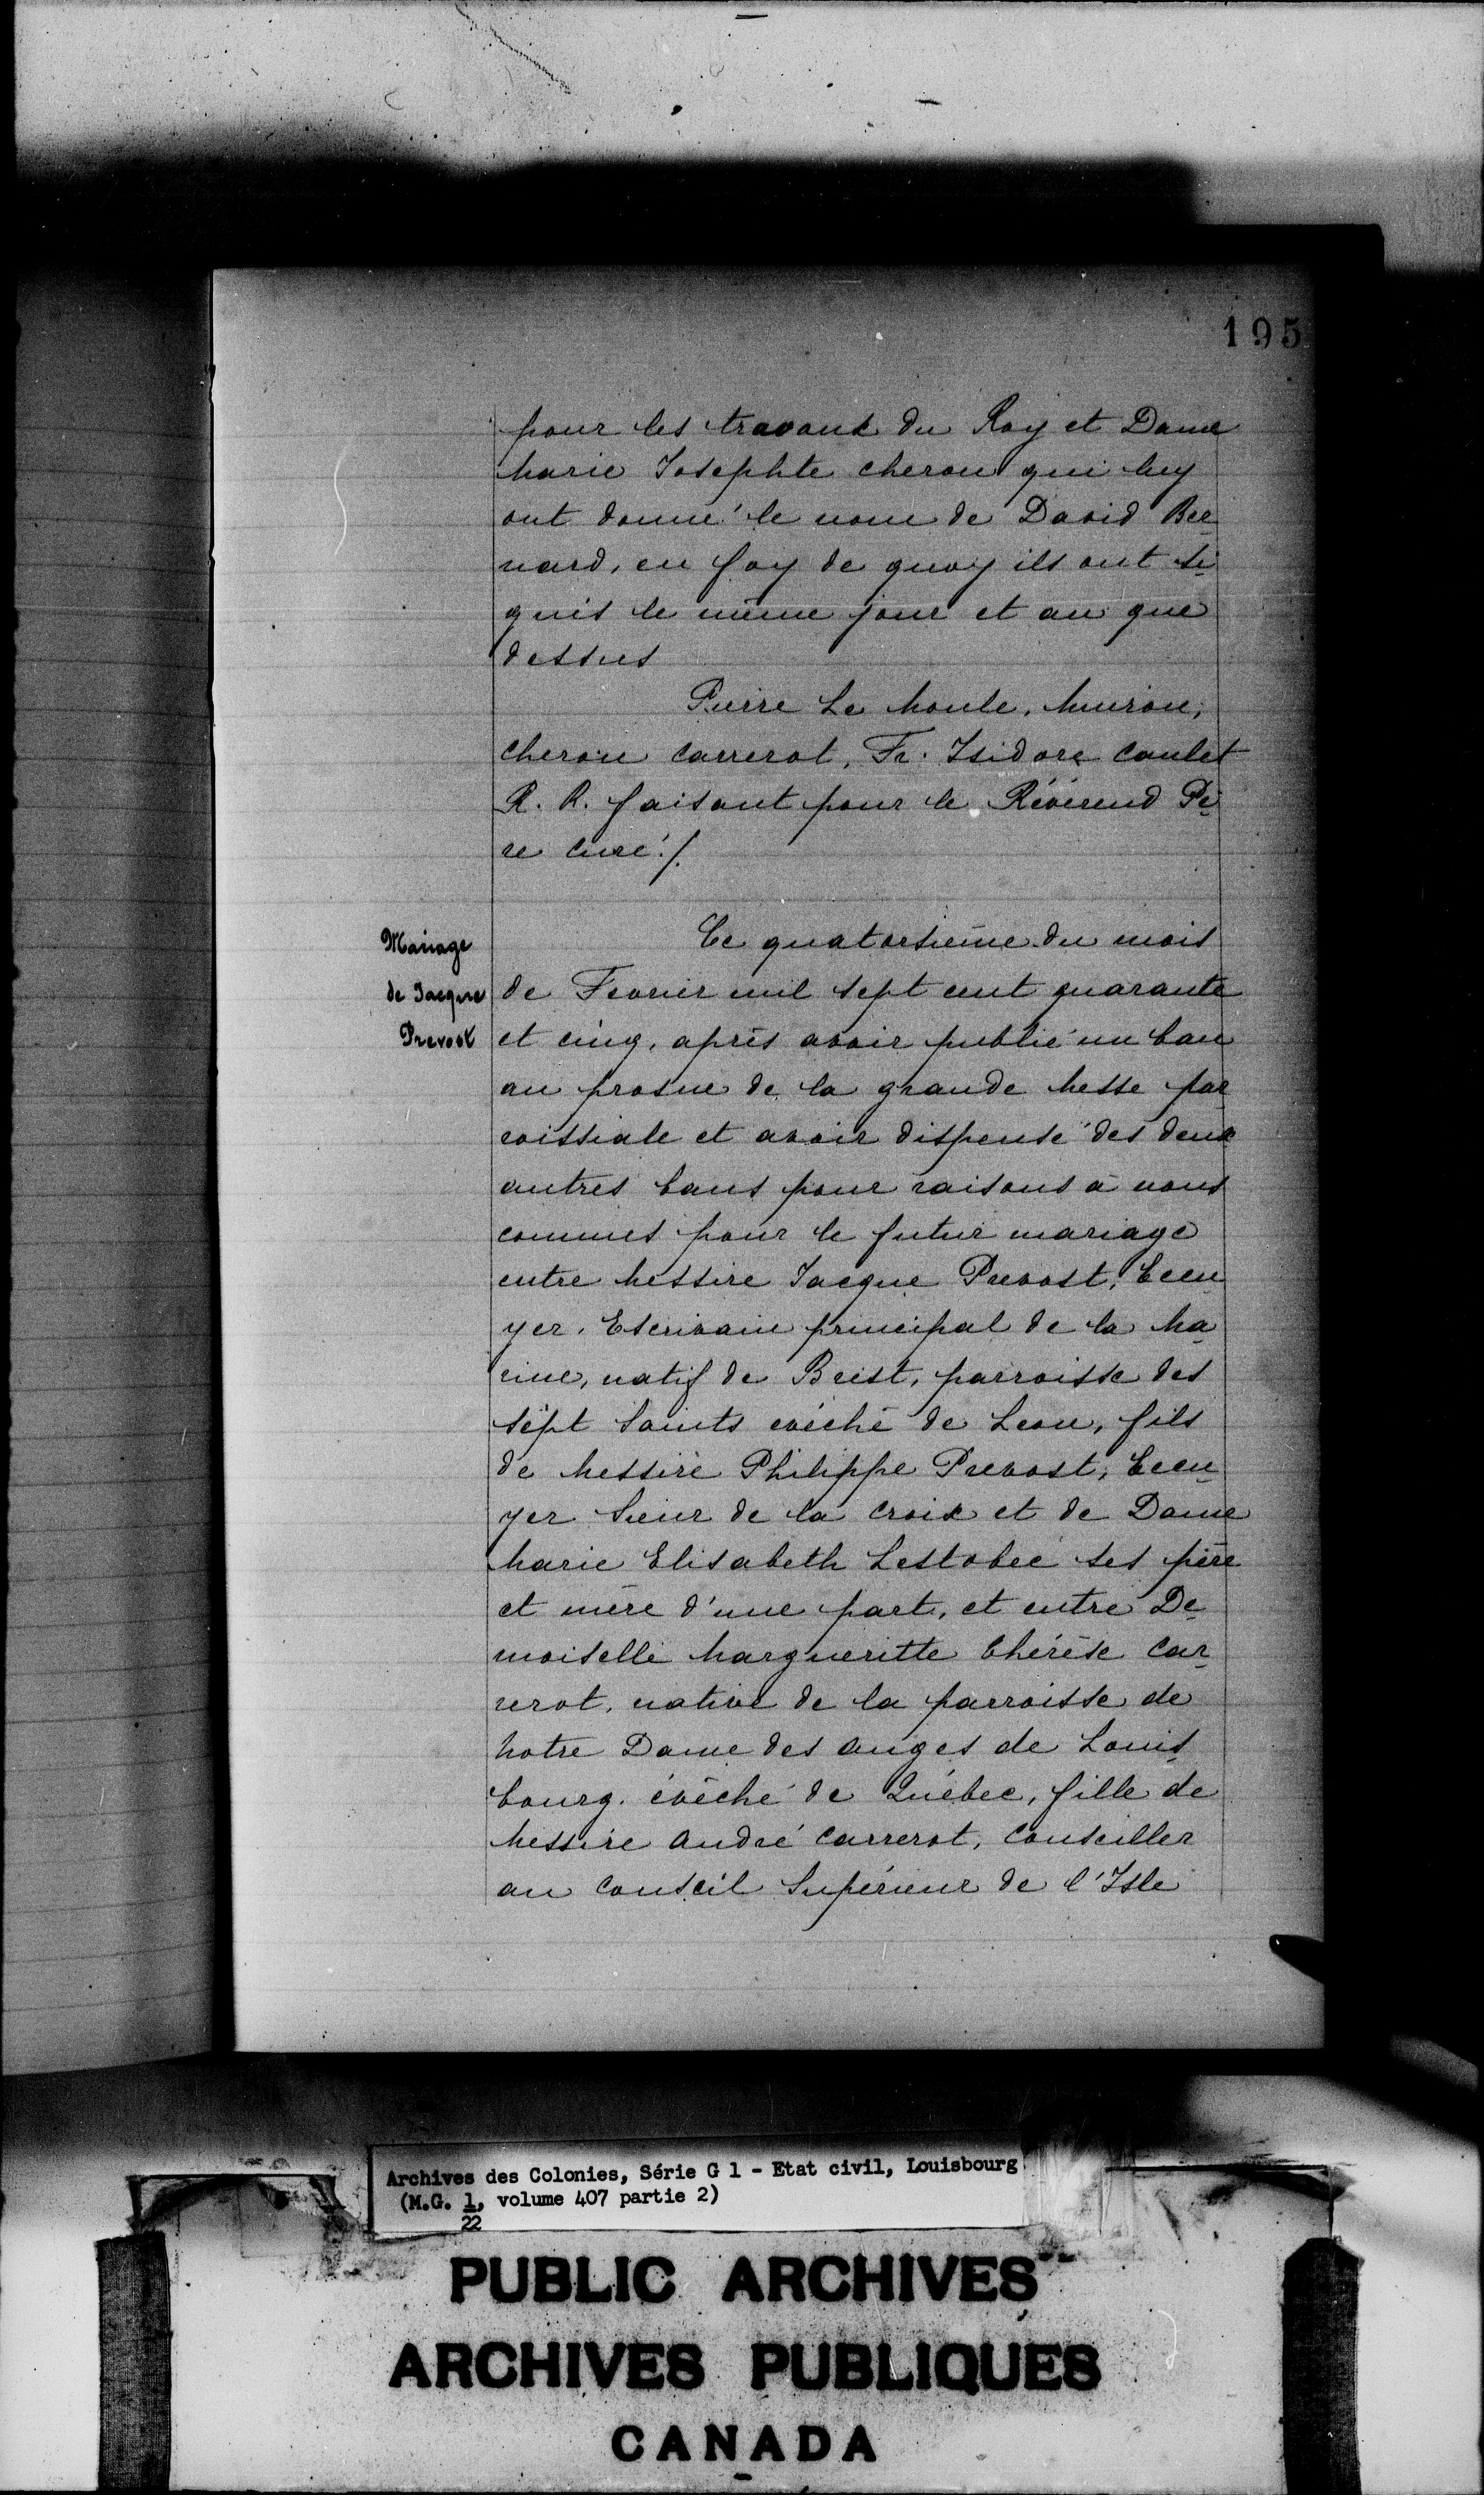 195
pour les travaux du Roy et Dame
Marie Josephte cheron qui luy
ont donné le nom de David Ber
nard, en foy de quoy ils ont si
gnés le même jour et an que
dessus
Pierre Le Moule, Muiron,
cheron carrerot, Fr. Isidore caulet
R. R. faisant pour le Révérend Pè
re curé ./.
Mariage
de Jacque
Prevost
Ce quatorsième du mois
de Fevrier mil sept cent quarante
et cinq, après avoir publié un ban
au prosne de la grande Messe par
roissiale et avoir dispensé des deux
autres bans pour raisons à nous
connues pour le futur mariage
entre Messire Jacque Prevost, Eccu
yer, Escrivain principal de la Ma
rine, natif de Brest, parroisse des
Sept Saints evêché de Leon, fils
de Messire Philippe Prevost, Eccu
yer Sieur de la croix et de Dame
Marie Elisabeth Lestobec ses père
et mère d'une part, et entre De
moiselle Margueritte thérèse Car
rerot, native de la parroisse de
Notre Dame des anges de Louis
bourg, évêché de Québec, fille de
Messire André Carrerot, Conseiller
au Conseil Supérieur de l'Isle
Archives des Colonies, Série G 1 - Etat civil, Louisbourg
(M.G. 1, volume 407 partie 2)
22
PUBLIC ARCHIVES
ARCHIVES PUBLIQUES
CANADA